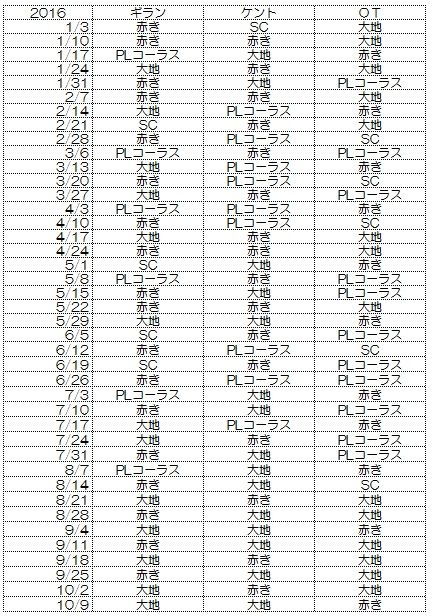 2016 ギラン ケント OT
1/3 赤き SC 大地
1/10 赤き 赤き 大地
1/17 PLコーラス 大地 赤き
1/24 大地 赤き 大地
1/31 赤き 大地 PLコーラス
2/7 赤き 赤き 大地
2/14 大地 PLコーラス 赤き
2/21 SC 赤き 大地
2/28 赤き PLコーラス SC
3/6 PLコーラス 赤き PLコーラス
3/13 大地 PLコーラス 赤き
3/20 赤き PLコーラス SC
3/27 大地 赤き PLコーラス
4/3 PLコーラス PLコーラス 赤き
4/10 赤き PLコーラス SC
4/17 大地 赤き 大地
4/24 赤き 赤き 大地
5/1 SC 大地 赤き
5/8 PLコーラス 赤き PLコーラス
5/15 赤き 大地 PLコーラス
5/22 赤き 赤き 大地
5/29 大地 大地 赤き
6/5 SC 赤き PLコーラス
6/12 赤き PLコーラス SC
6/19 SC 赤き PLコーラス
6/26 赤き PLコーラス PLコーラス
7/3 PLコーラス 大地 赤き
7/10 赤き 大地 PLコーラス
7/17 大地 PLコーラス 赤き
7/24 大地 赤き PLコーラス
7/31 赤き 大地 PLコーラス
8/7 PLコーラス 大地 赤き
8/14 赤き 大地 SC
8/21 大地 赤き 大地
8/28 赤き 大地 大地
9/4 大地 大地 赤き
9/11 赤き 大地 大地
9/18 大地 赤き 大地
9/25 赤き 大地 大地
10/2 大地 赤き 大地
10/9 大地 大地 赤き